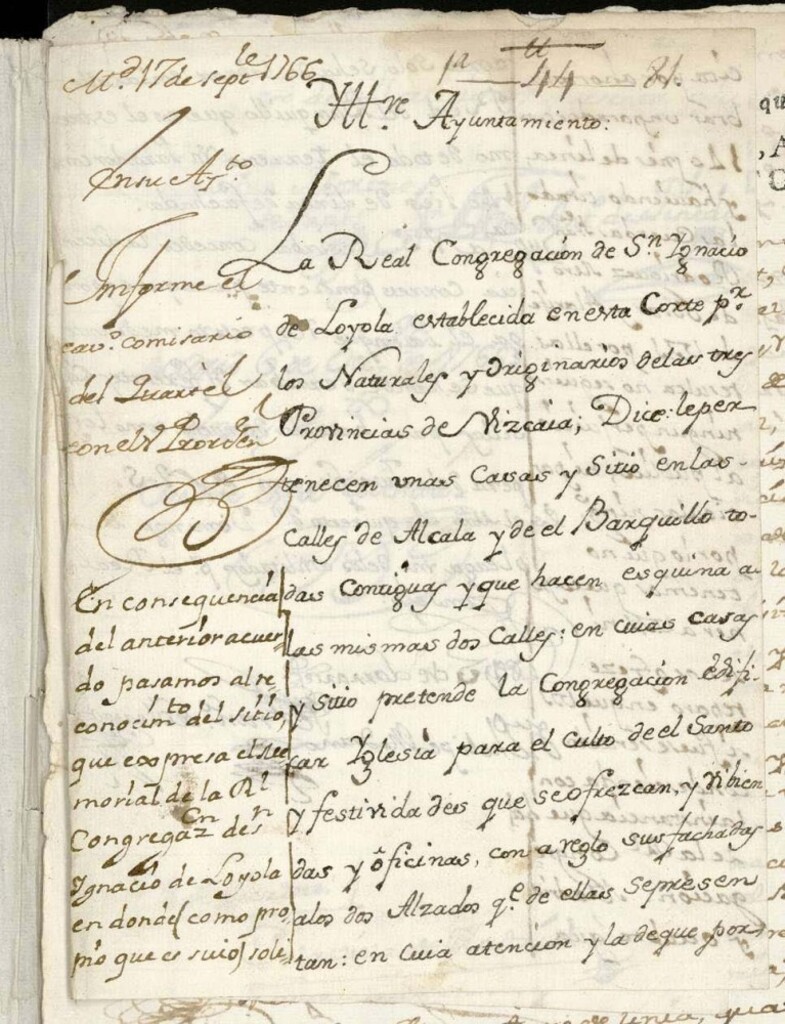 M.d 17 de sept.le 1766
44 81.
Yll.re Ayuntamiento:
En su Ay.to
Informe el
cav.o comisario
del Quartel
con el
La Real Congregación de S.n Ygnacio
de Loyola establecida en esta Corte p.r
los Naturales y originarios de las tres
Provincias de Vizcaia; Dice: le per
tenecen unas Casas y Sitio en las
Calles de Alcala y de el Barquillo to-
das contiguas y que hacen esquina a
las mismas dos Calles: en cuias casas
y sitio pretende la Congregación edifi-
car Yglesia para el culto de el Santo
y festividades que se ofrezcan, y vibien
das y oficinas, con areglo sus fachadas
alos dos Alzados q.e de ellas se presen
tan: en cuia atencion y la de que por
En consequencia
del anterior acuer
do pasamos al re
conocim.to del sitio,
que expresa el Me
morial de la R.l
Congregaz.n de S.n
Ygnacio de Loyola
en donde (como pro
pio que es suio) soli